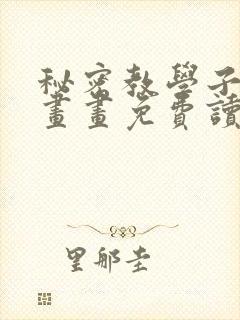 秘密教學子
畫畫免費讀
里那圭